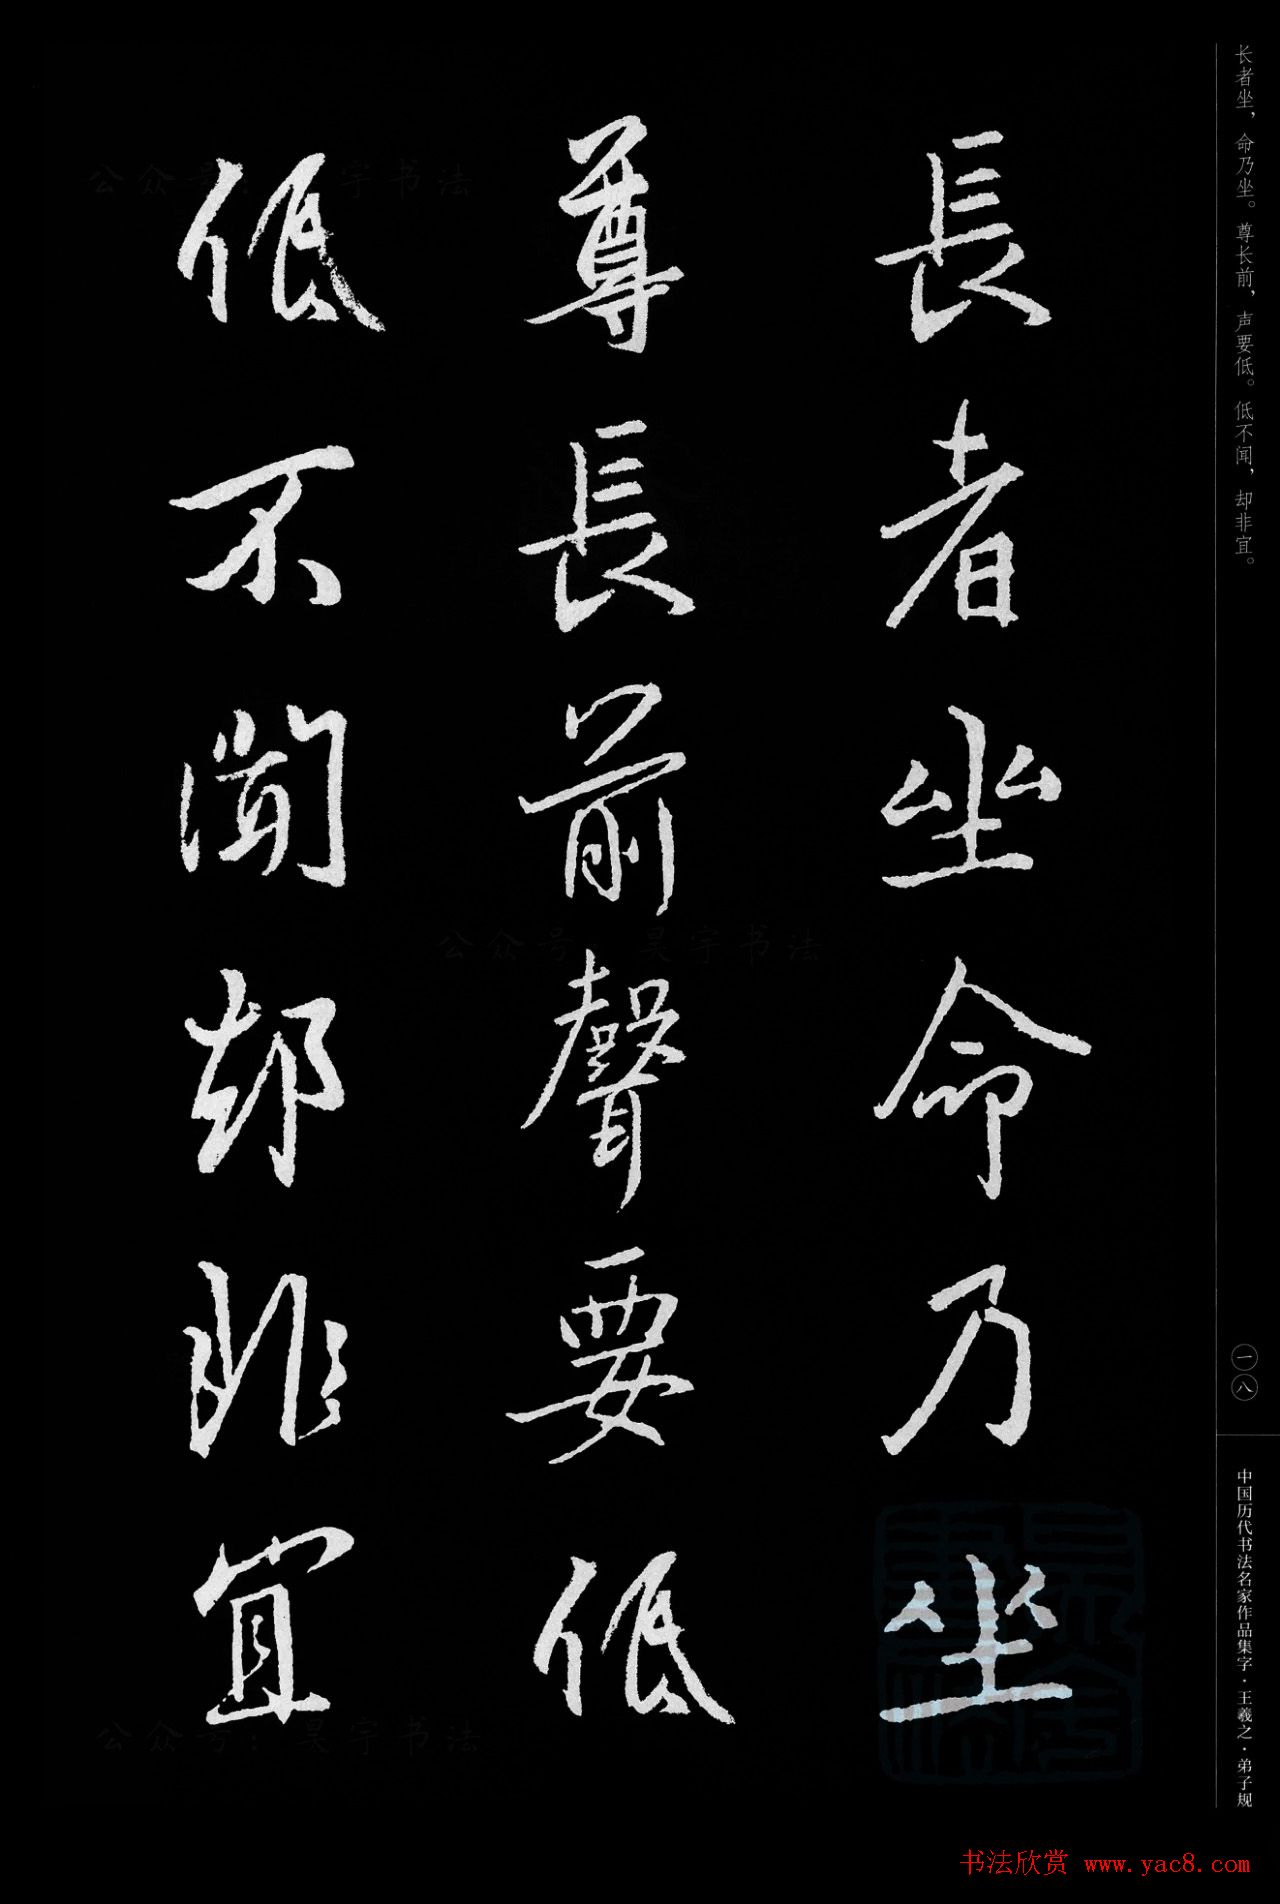 长者坐，命乃坐。尊长前，声要低。低不闻，却非宜。
長者坐命乃坐
尊長前聲要低
低不聞却非宜
一八
中国历代书法名家作品集字·王羲之·弟子规
公众号：昊宇书法
公众号：昊宇书法
公众号：昊宇书法
书法欣赏 www.yac8.com